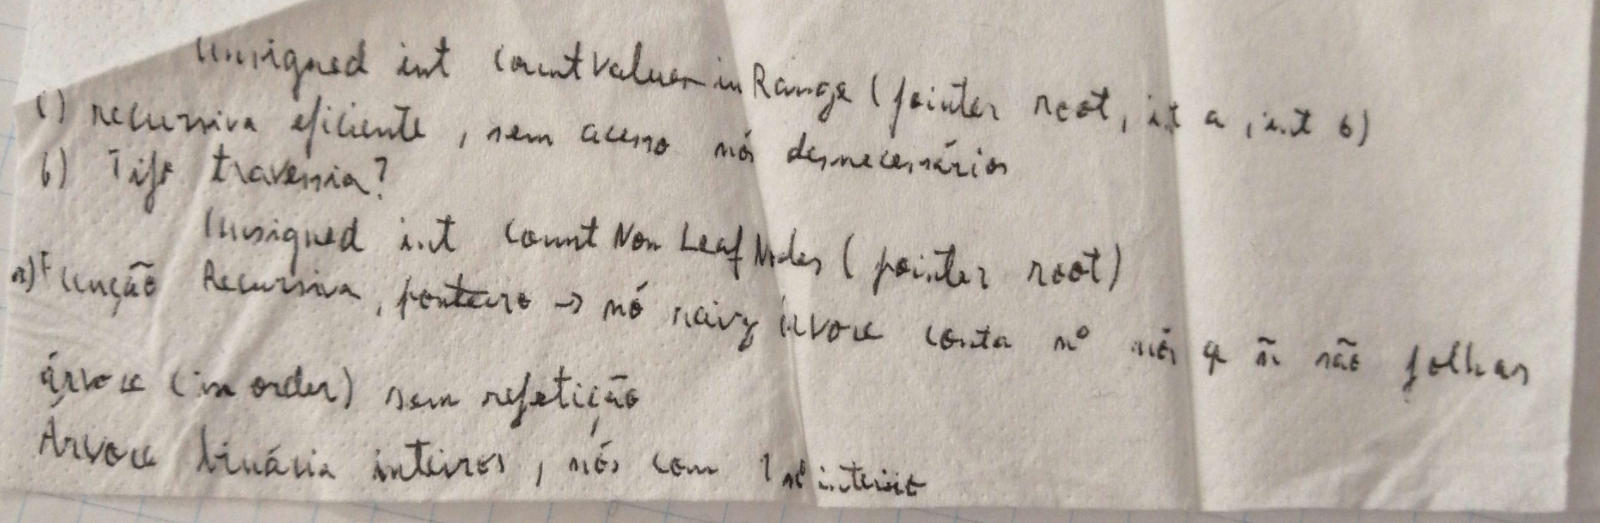 Unsigned int countValuesinRange (pointer root, int a, int b)
() recursiva eficiente, sem acesso nós desnecessários
b) Tipo travessia?
Unsigned int countNonLeafNodes (pointer root)
a) Função Recursiva, ponteiro → nó raiz árvore conta nº nós q ñ são folhas
árvore (in order) sem repetição
Árvore binária inteiros, nós com 1 nº inteiro